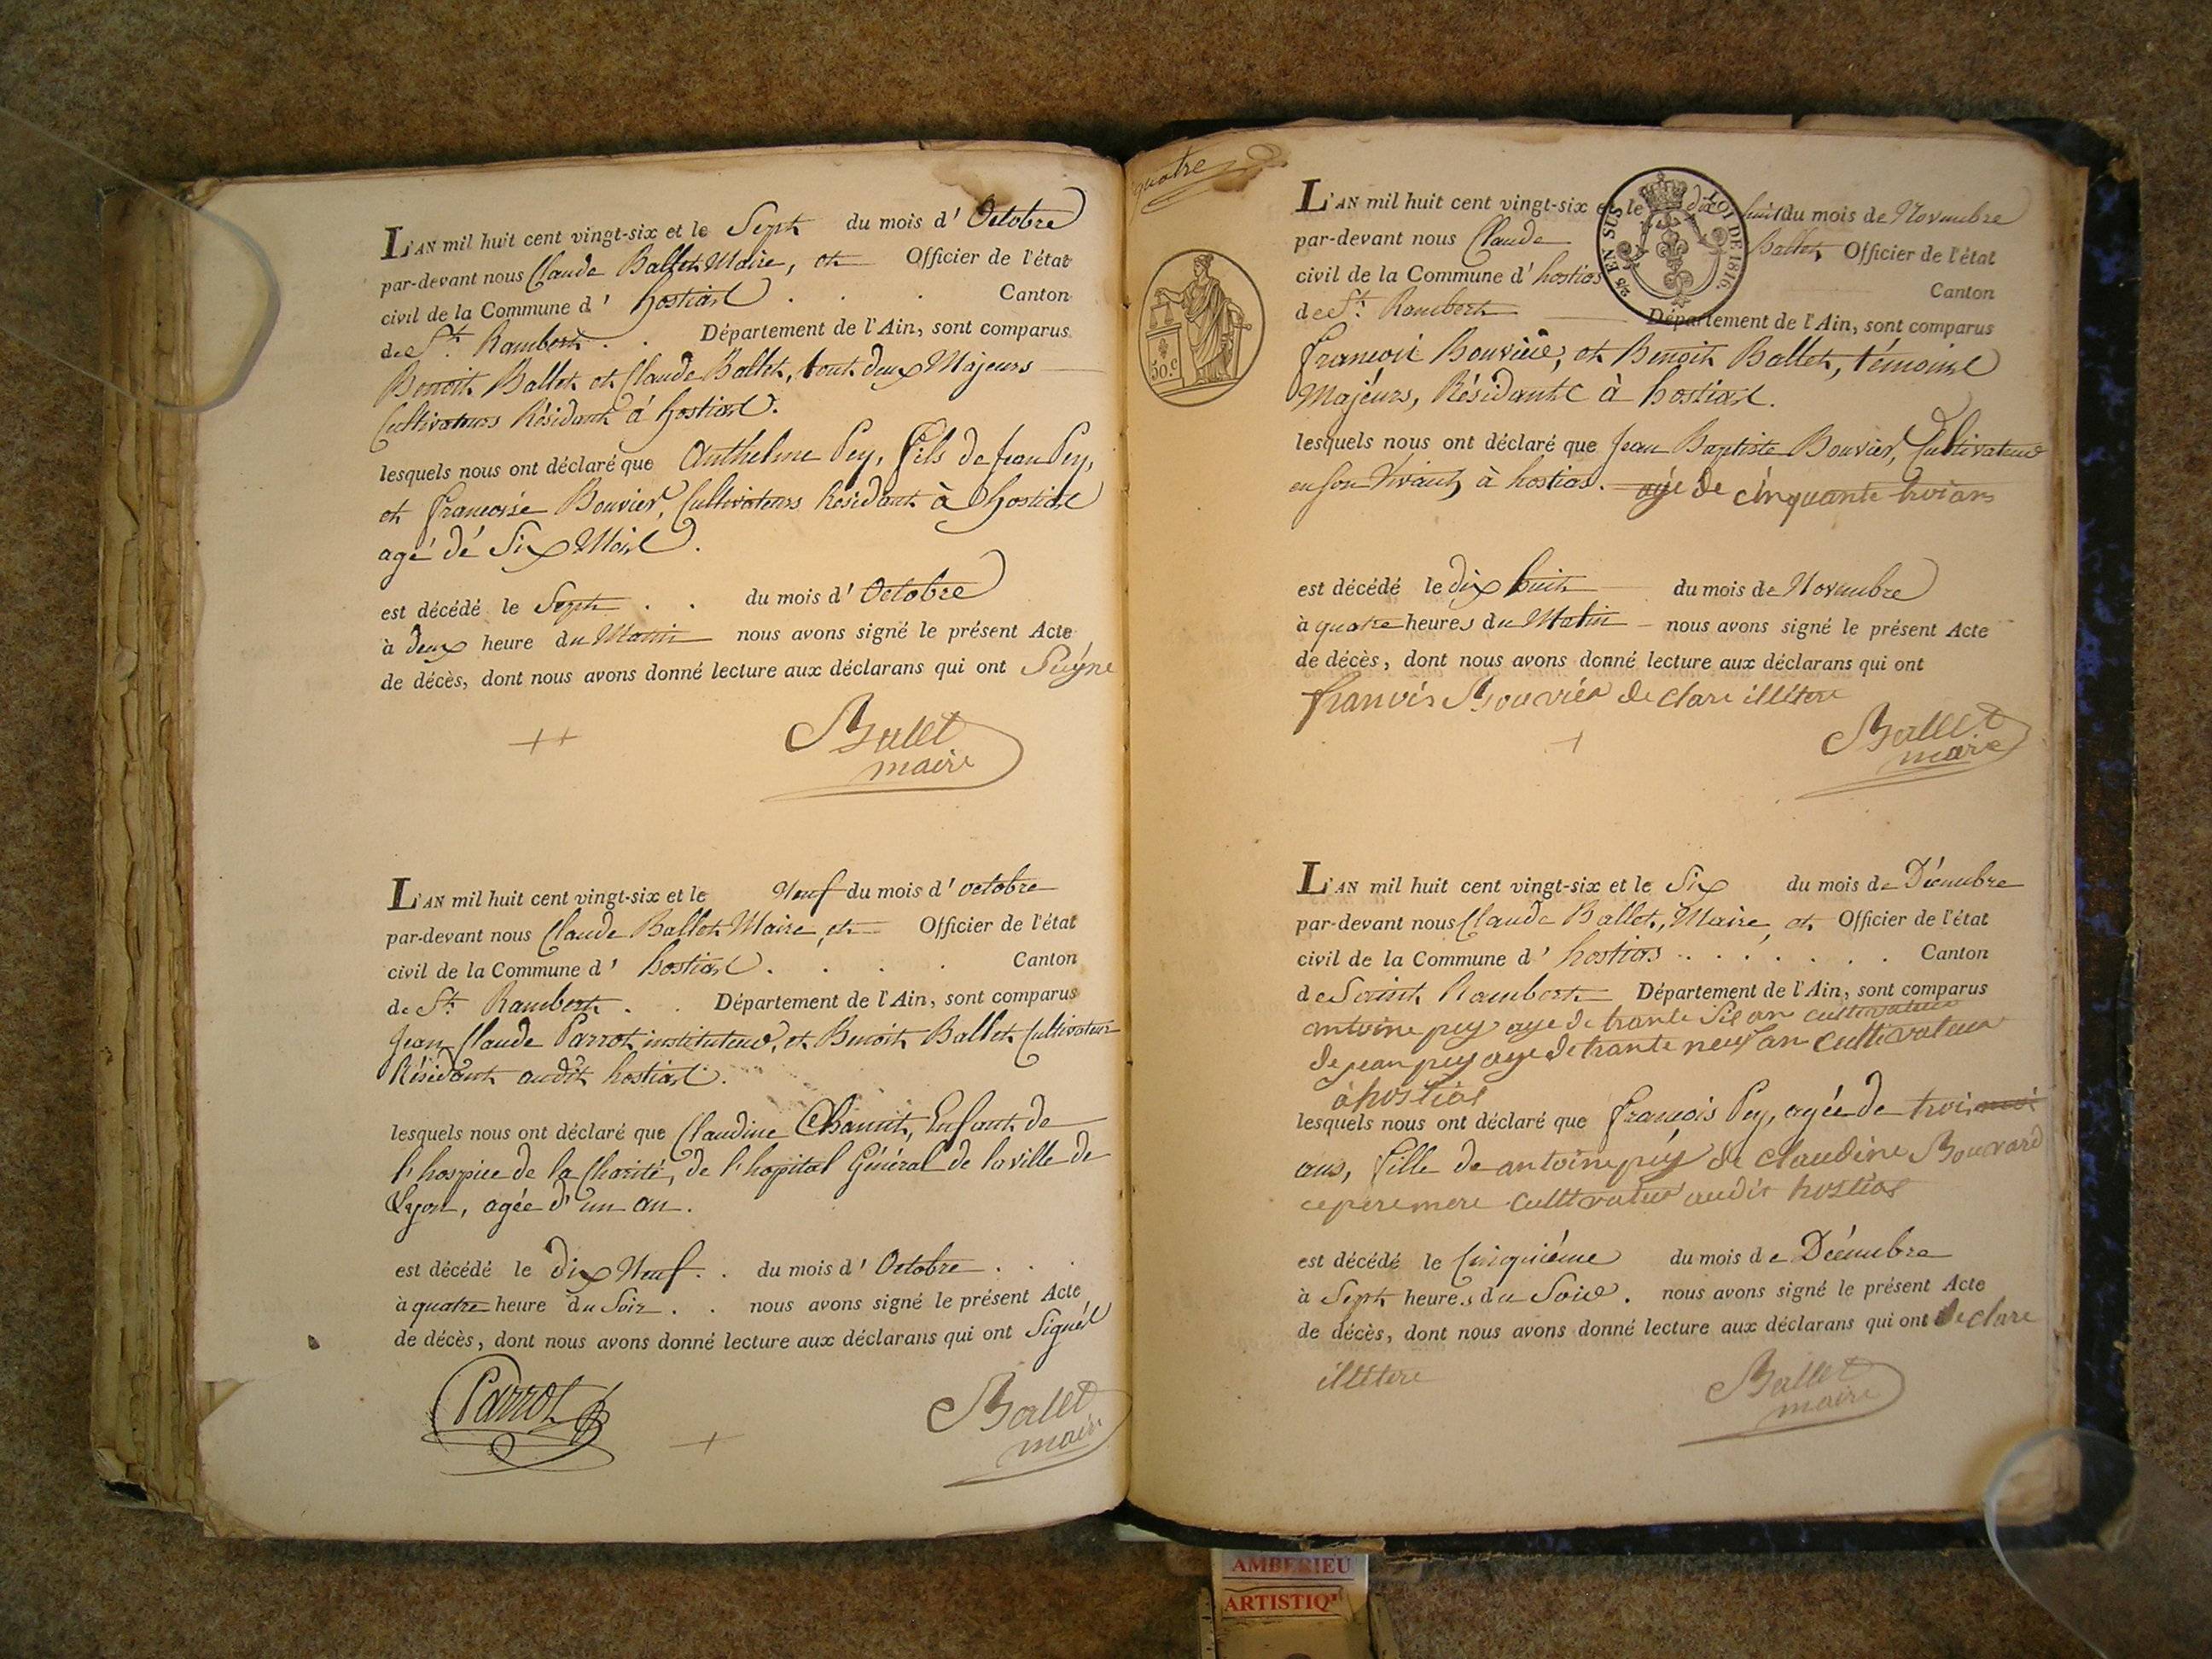 L'AN mil huit cent vingt-six et le Sept du mois d' Octobre
par-devant nous Claude Ballet Maire, et Officier de l'état
civil de la Commune d' hostias . . . Canton
de St. Rambert . . Département de l'Ain, sont comparus
Benoit Ballet et Claude Ballet, tout deux Majeurs
Cultivateurs Résidant à hostias.
lesquels nous ont déclaré que Anthelme Pey, fils de Jean Pey,
et francoise Bouvier, Cultivateurs Résidant à hostias
agé dé Six Mois.
est décédé le Sept . . du mois d' Octobre
à deux heure du Matin nous avons signé le présent Acte
de décès, dont nous avons donné lecture aux déclarans qui ont
++
Ballet
maire
L'AN mil huit cent vingt-six et le Neuf du mois d' octobre
par-devant nous Claude Ballet Maire, et Officier de l'état
civil de la Commune d' hostias . . . . Canton
de St. Rambert . . Département de l'Ain, sont comparus
Jean Claude Parrot instituteur, et Benoit Ballet Cultivateur
Résidant audit hostias.
lesquels nous ont déclaré que Claudine Enfant de
l'hospice de la Charité, de l'hopital Général de la ville de
Lyon, agée d'un an.
est décédé le dix Neuf . . du mois d' Octobre . . .
à quatre heure du Soir . . nous avons signé le présent Acte
de décès, dont nous avons donné lecture aux déclarans qui ont Signés
Parrot
+
Ballet
maire
quatre
30.c
LOI DE 1816.
25 EN SUS
L'AN mil huit cent vingt-six et le dix huit du mois de Novembre
par-devant nous Claude Ballet Officier de l'état
civil de la Commune d' hostias Canton
de St. Rambert Département de l'Ain, sont comparus
francois Bouvier, et Benoit Ballet, témoins
Majéurs, Résidants à hostias.
lesquels nous ont déclaré que Jean Baptiste Bouvier, Cultivateur
en son Vivant, à hostias. agé de cinquante trois ans
est décédé le dix huit du mois de Novembre
à quatre heures du Matin nous avons signé le présent Acte
de décès, dont nous avons donné lecture aux déclarans qui ont
francois Bouvier declare illétere
+
Ballet
maire
L'AN mil huit cent vingt-six et le Six du mois de Décembre
par-devant nous Claude Ballet, Maire, et Officier de l'état
civil de la Commune d' hostias . . . . . . . Canton
de Saint Rambert Département de l'Ain, sont comparus
antoine pey age de trante Sis an cultivateur
de jean pey age de trante neuf an cultivateur
a hostias
lesquels nous ont déclaré que françois Pey, agée de trois moi
ans, fille de antoine pey de claudine Bouvard
ce pere mere cultivateur audit hostias
est décédé le Cinquiéme du mois de Décembre
à Sept heures du Soir. nous avons signé le présent Acte
de décès, dont nous avons donné lecture aux déclarans qui ont declare
illétere
Ballet
maire
AMBERIEU
ARTISTIQ